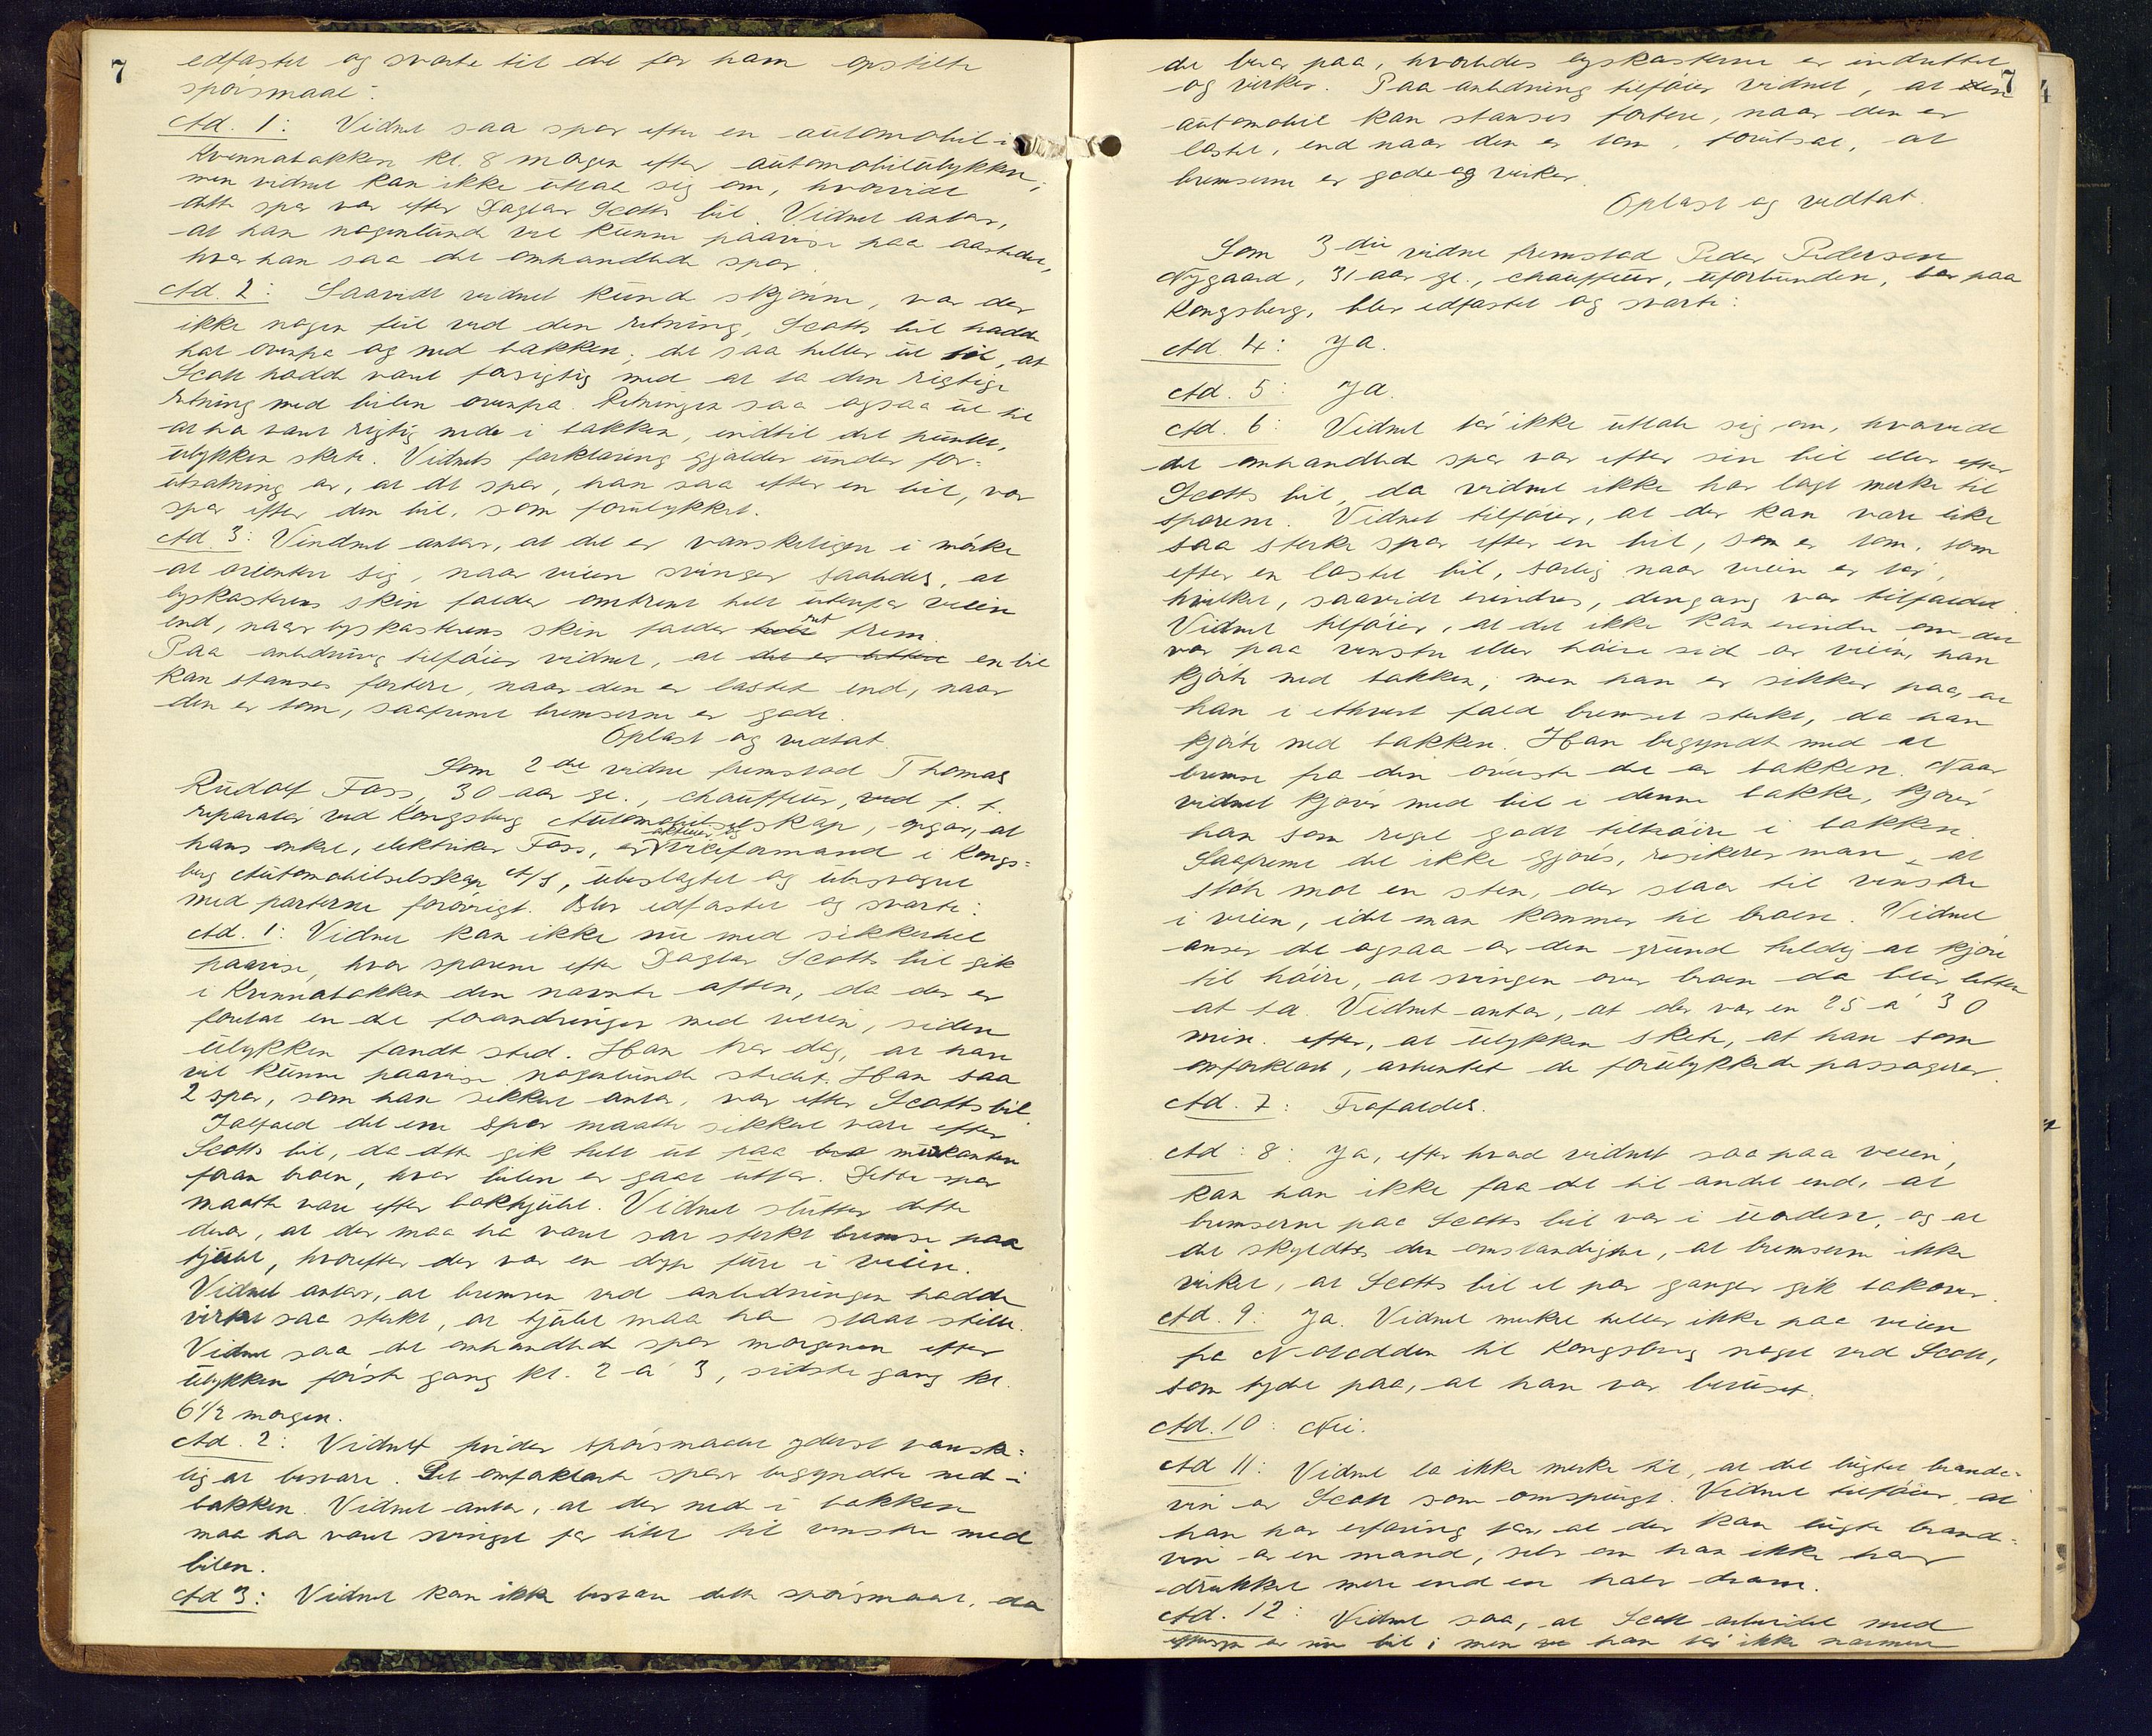 7
edfæstet og svarte til de for ham opstilte
spørsmaal:
Ad. 1: Vidnet saa spor efter en automobil i
Kvennabakken kl. 8 morgen efter automobilulykken;
men vidnet kan ikke uttale sig om, hvorvidt
dette spor var efter Dagtar Scotts bil. Vidnet antar,
at han nogenlunde vil kunne paavise paa aastedet,
hvor han saa det omhandlede spor.
Ad. 2: Saavidt vidnet kunde skjønne, var der
ikke nogen feil ved den retning, Scotts bil hadde
hat ovenfra og ned bakken; det saa heller ut til, at
Scott hadde været forsigtig med at ta den rigtige
retning med bilen ovenfra. Retningen saa ogsaa ut til
at ha været rigtig nede i bakken, indtil det punkt,
ulykken skete. Vidnets forklaring gjælder under for-
utsætning av, at det spor, han saa efter en bil, var
spor efter den bil, som forulykket.
Ad 3: Vindnet antar, at det er vanskeligere i mørke
at orientere sig, naar veien svinger saaledes, at
lyskasterens skin falder omtrent helt utenfor veien
end, naar lyskasterens skin falder ret frem.
Paa anledning tilføier vidnet, at det er lettere en bil
kan stanses fortere, naar den er lastet end, naar
den er tom, saafremt bremserne er gode.
Oplæst og vedtat.
Som 2de vidne fremstod Thomas
Rudolf Foss, 30 aar gl., chauffeur, ved f. t.
reparatør ved Kongsberg Automobilselskap, opgav, at
hans onkel, elektriker Foss, er aktieeier og viceformand i Kongs-
berg Automobilselskap A/S, ubeslægtet og ubesvogret
med parterne forøvrigt. Blev edfæstet og svarte:
Ad. 1: Vidnet kan ikke nu med sikkerhet
paavise, hvor sporene efter Dagtar Scotts bil gik
i Kvennabakken den nævnte aften, da der er
foretat en del forandringer med veien, siden
ulykken fandt sted. Han tror dog, at han
vil kunne paavise nogenlunde stedet. Han saa
2 spor, som han sikkert antar, var efter Scotts bil.
Ialfald det ene spor maatte sikkert være efter
Scotts bil, da dette gik helt ut paa bro murkanten
foran broen, hvor bilen er gaat utfor. Dette spor
maatte være efter bakhjulet. Vidnet slutter dette
derav, at der maa ha været sat sterkt bremse paa
hjulet, hvorefter der var en dyp fure i veien.
Vidnet antar, at bremsen ved anledningen hadde
virket saa sterkt, at hjulet maa ha staat stille.
Vidnet saa det omhandlede spor morgenen efter
ulykken første gang kl. 2 à 3, sidste gang kl.
6 1/2 morgen.
Ad. 2: Vidnet finder spørsmaalet yderst vanske-
lig at besvare. Det omforklarte spor begyndte ned i
bakken. Vidnet antar, at der ned i bakken
maa ha været svinget for litet til venstre med
bilen.
Ad 3: Vidnet kan ikke besvare dette spørsmaal, da
7
det beror paa, hvorledes lyskasterne er indrettet
og virker. Paa anledning tilføier vidnet, at den
automobil kan stanses fortere, naar den er
lastet, end naar den er tom, forutsat, at
bremserne er gode og virker.
Oplæst og vedtat.
Som 3die vidne fremstod Peder Pedersen
Nygaard, 31 aar gl., chauffeur, uforbunden, bor paa
Kongsberg, blev edfæstet og svarte:
Ad. 4: Ja.
Ad. 5: Ja.
Ad. 6: Vidnet tør ikke uttale sig om, hvorvidt
det omhandlede spor var efter sin bil eller efter
Scotts bil, da vidnet ikke har lagt merke til
sporene. Vidnet tilføier, at der kan være like
saa sterke spor efter en bil, som er tom, som
efter en lastet bil, særlig naar veien er tør,
hvilket, saavidt erindres, dengang var tilfældet.
Vidnet tilføier, at det ikke kan erindre om det
var paa venstre eller høire side av veien, han
kjørte ned bakken; men han er sikker paa, at
han i ethvert fald bremset sterkt, da han
kjørte ned bakken. Han begyndte med at
bremse fra den øverste del av bakken. Naar
vidnet kjører med bil i denne bakke, kjører
han som regel godt tilhøire i bakken.
Saafremt det ikke gjøres, risikerer man at
støte mot en sten, der staar til venstre
i veien, idet man kommer til broen. Vidnet
anser det ogsaa av den grund heldig at kjøre
til høire, at svingen over broen da blir lettere
at ta. Vidnet antar, at der var en 25 à 30
min. efter, at ulykken skete, at han som
omforklart, avhentet de forulykkede passagerer.
Ad. 7: Frafaldes.
Ad: 8: Ja, efter hvad vidnet saa paa veien,
kan han ikke faa det til andet end, at
bremserne paa Scotts bil var i uorden, og at
det skyldtes den omstændighet, at bremserne ikke
virket, at Scotts bil et par ganger gik bakover.
Ad. 9: Ja. Vidnet merket heller ikke paa veien
fra Notodden til Kongsberg noget ved Scott,
som tydet paa, at han var beruset.
Ad. 10: Nei.
Ad 11: Vidnet la ikke merke til, at det lugtet brænde-
vin av Scott som omspurgt. Vidnet tilføier, at
han har erfaring for, at der kan lugte brænde-
vin av en mand, selv om han ikke har
drukket mere end en halv dram.
Ad. 12: Vidnet saa, at Scott arbeidet med
bil; men han tør ikke nærmere